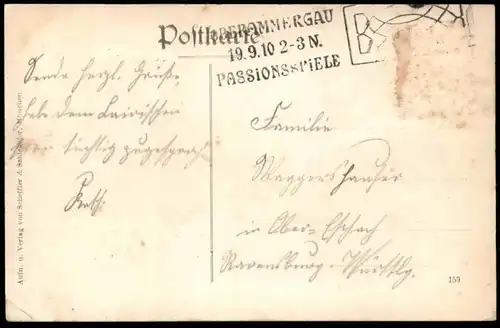 Postkarte
OBERAMMERGAU
19.9.10 2-3 N.
PASSIONSSPIELE
Sende herzl. Grüße,
habe dem bairischen
Bier tüchtig zugesprochen
Familie
Waggershauser
in Ober-Eschach
Ravensburg. Württbg.
Aufn. u. Verlag von Scheffler & Sahlender, München
159